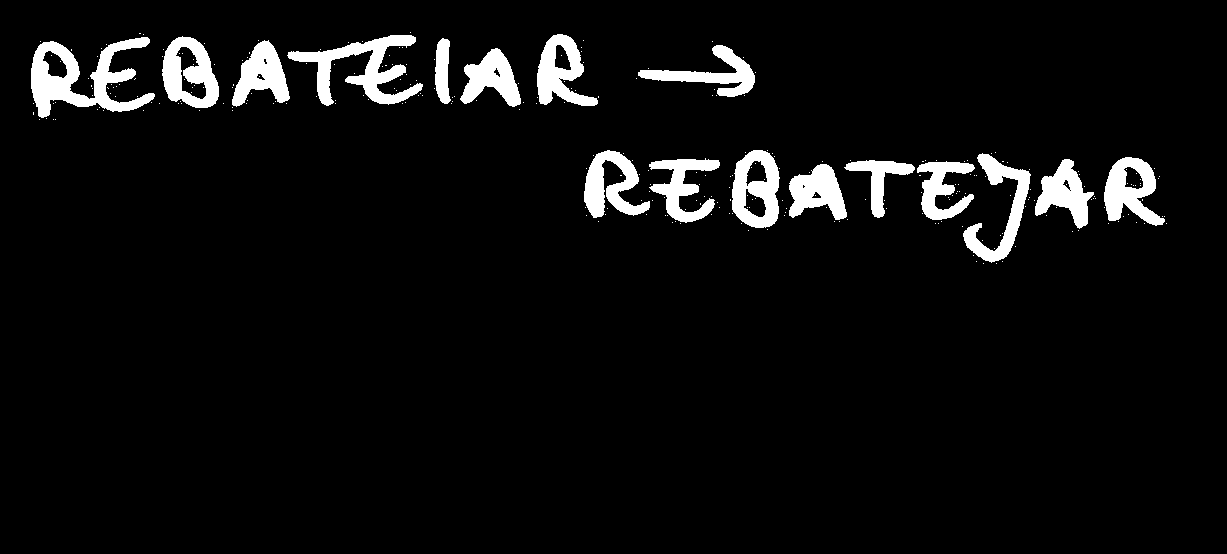 REBATEIAR →
REBATEJAR